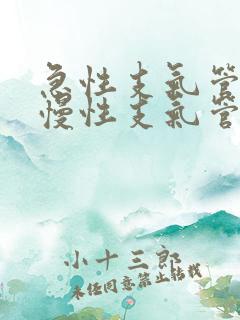 急性支氣管
慢性支氣管
小十三郎
未经同意禁止转载